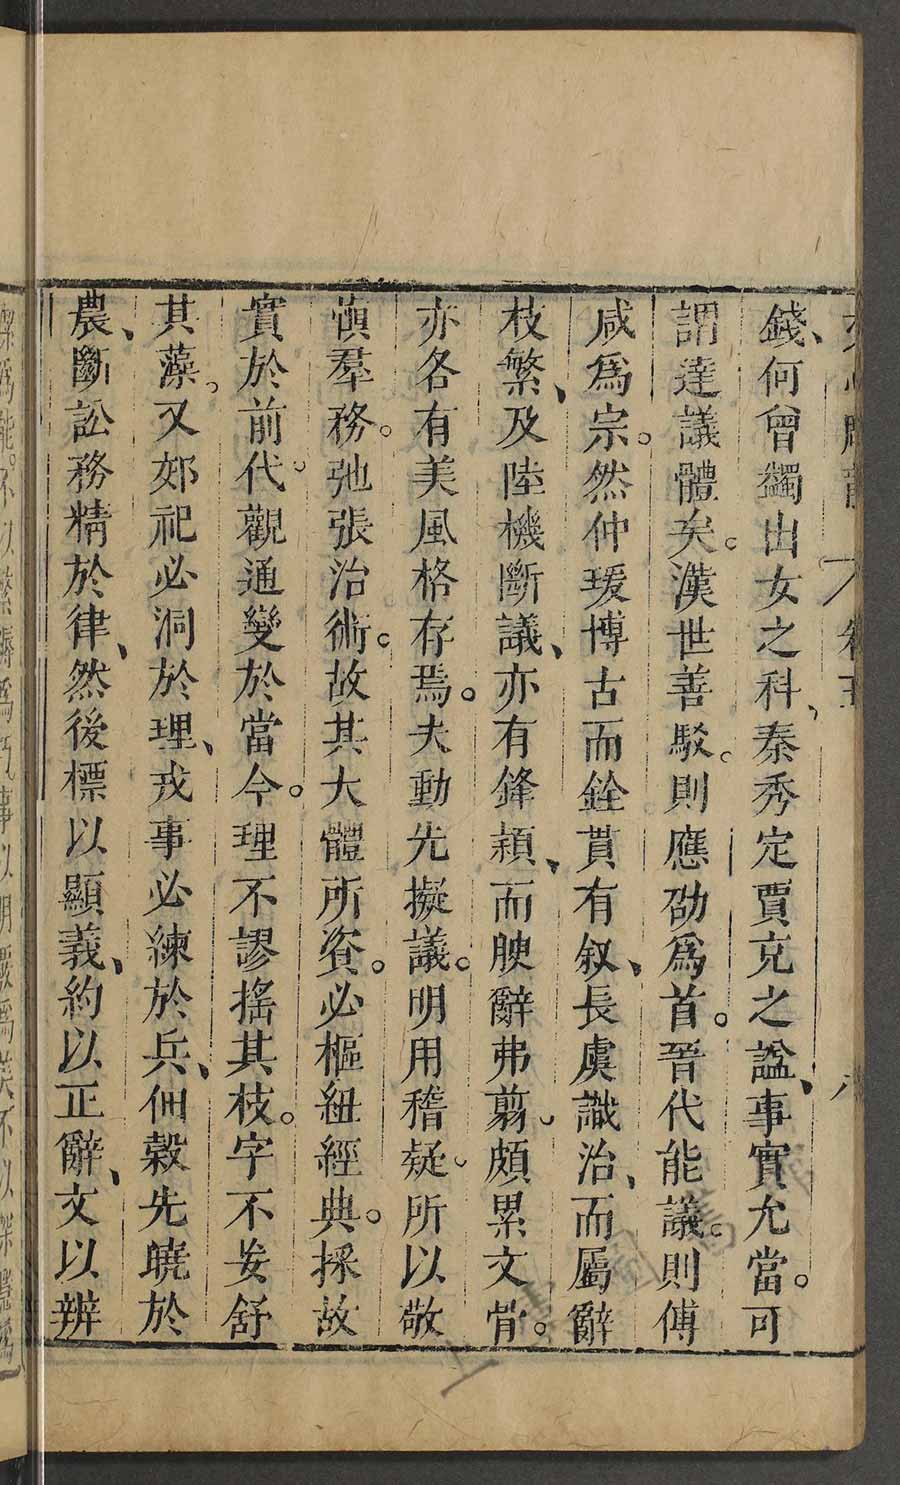 文心雕龍 卷五 八
錢、何曾蠲出女之科、秦秀定賈充之謚、事實允當。可
謂達議體矣。漢世善駁。則應劭爲首。晉代能議。則傅
咸爲宗。然仲瑗博古而銓貫有叙、長虞識治、而屬辭
枝繁、及陸機斷議、亦有鋒頴、而腴辭弗翦。頗累文骨。
亦各有美風格存焉。夫動先擬議。明用稽疑。所以敬
愼羣務。弛張治術。故其大體所資。必樞紐經典。採故
實於前代。觀通變於當今。理不謬搖其枝。字不妄舒
其藻。又郊祀必洞於理、戎事必練於兵、佃穀先曉於
農、斷訟務精於律、然後標以顯義、約以正辭、文以辨